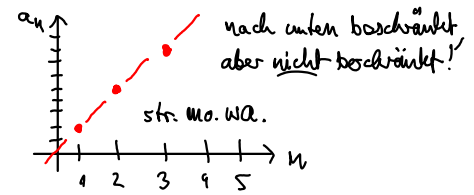 aₙ
nach unten beschränkt
aber nicht beschränkt!
str. mo. wa.
n
1 2 3 4 5